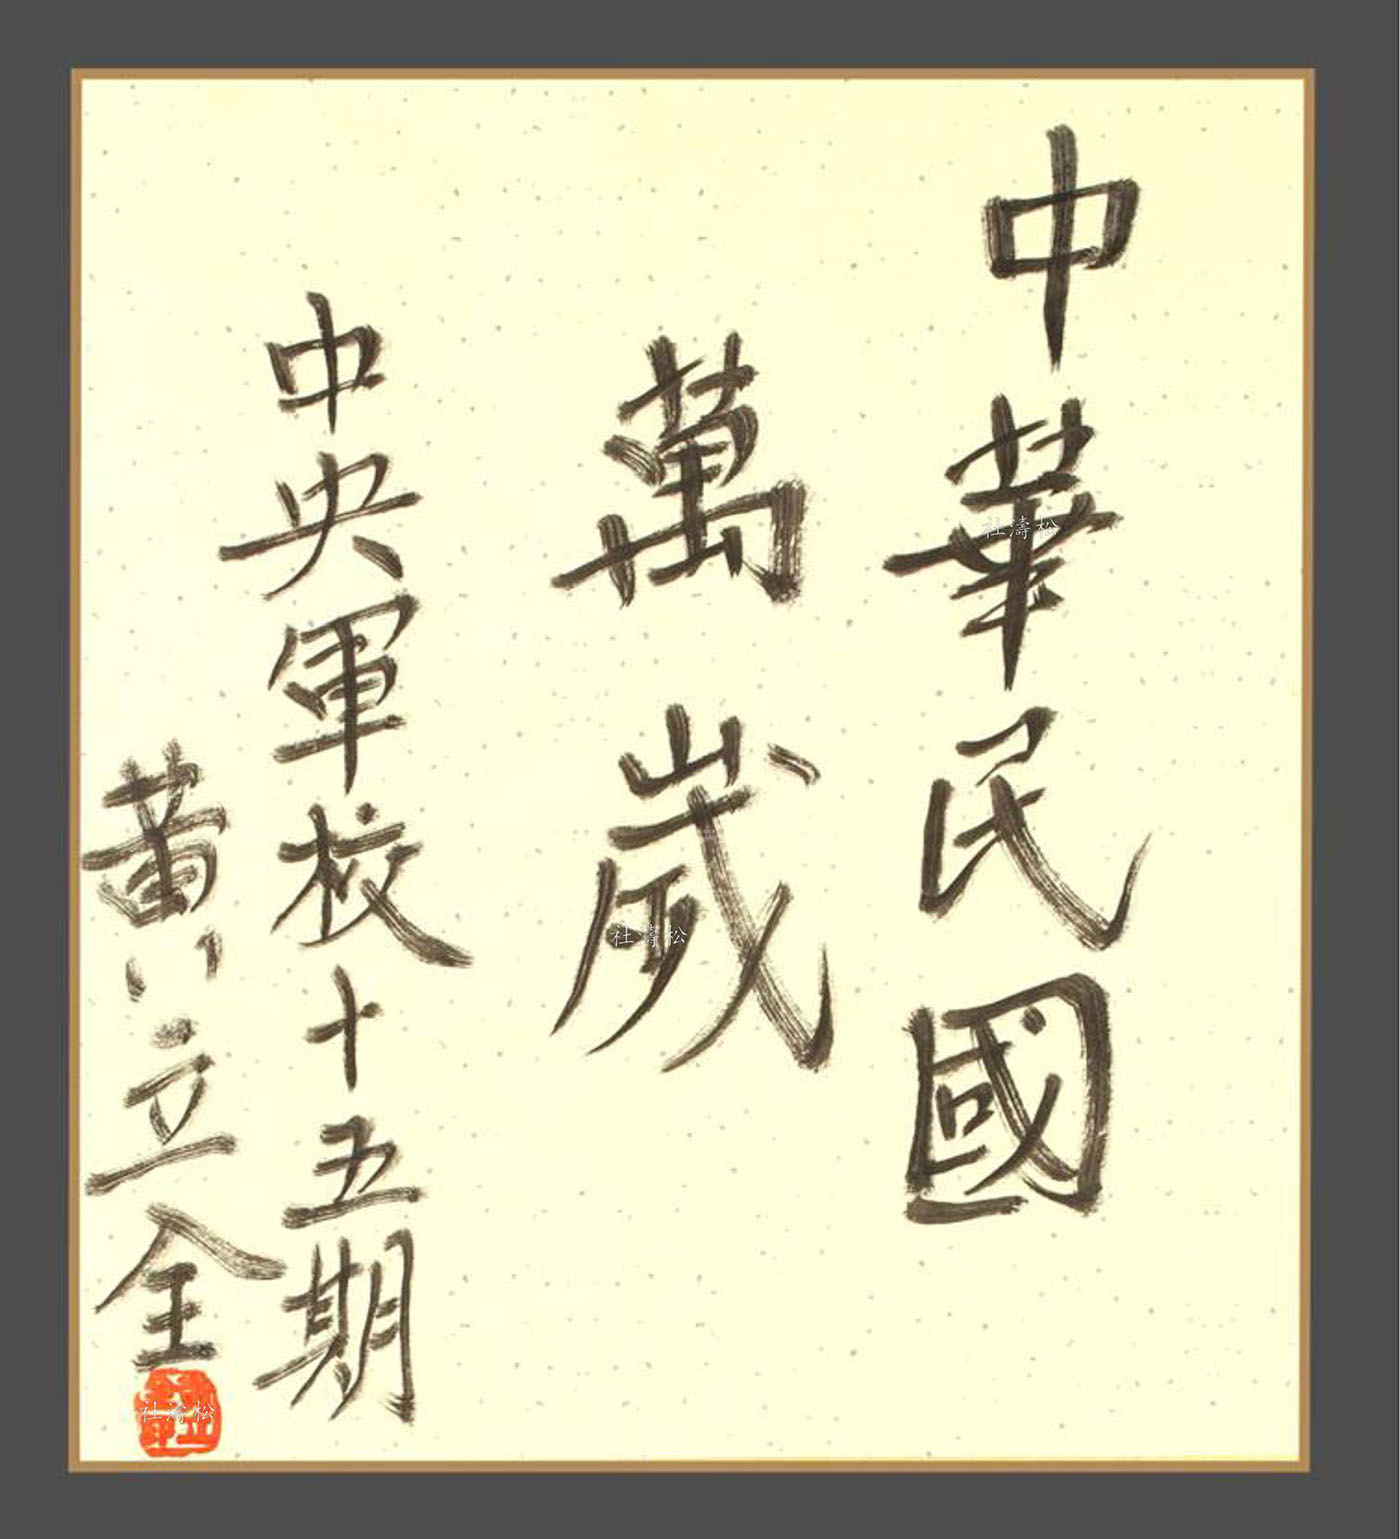 中華民國
萬歲
中央軍校十五期
黃立全
社濤松
社濤松
社濤松